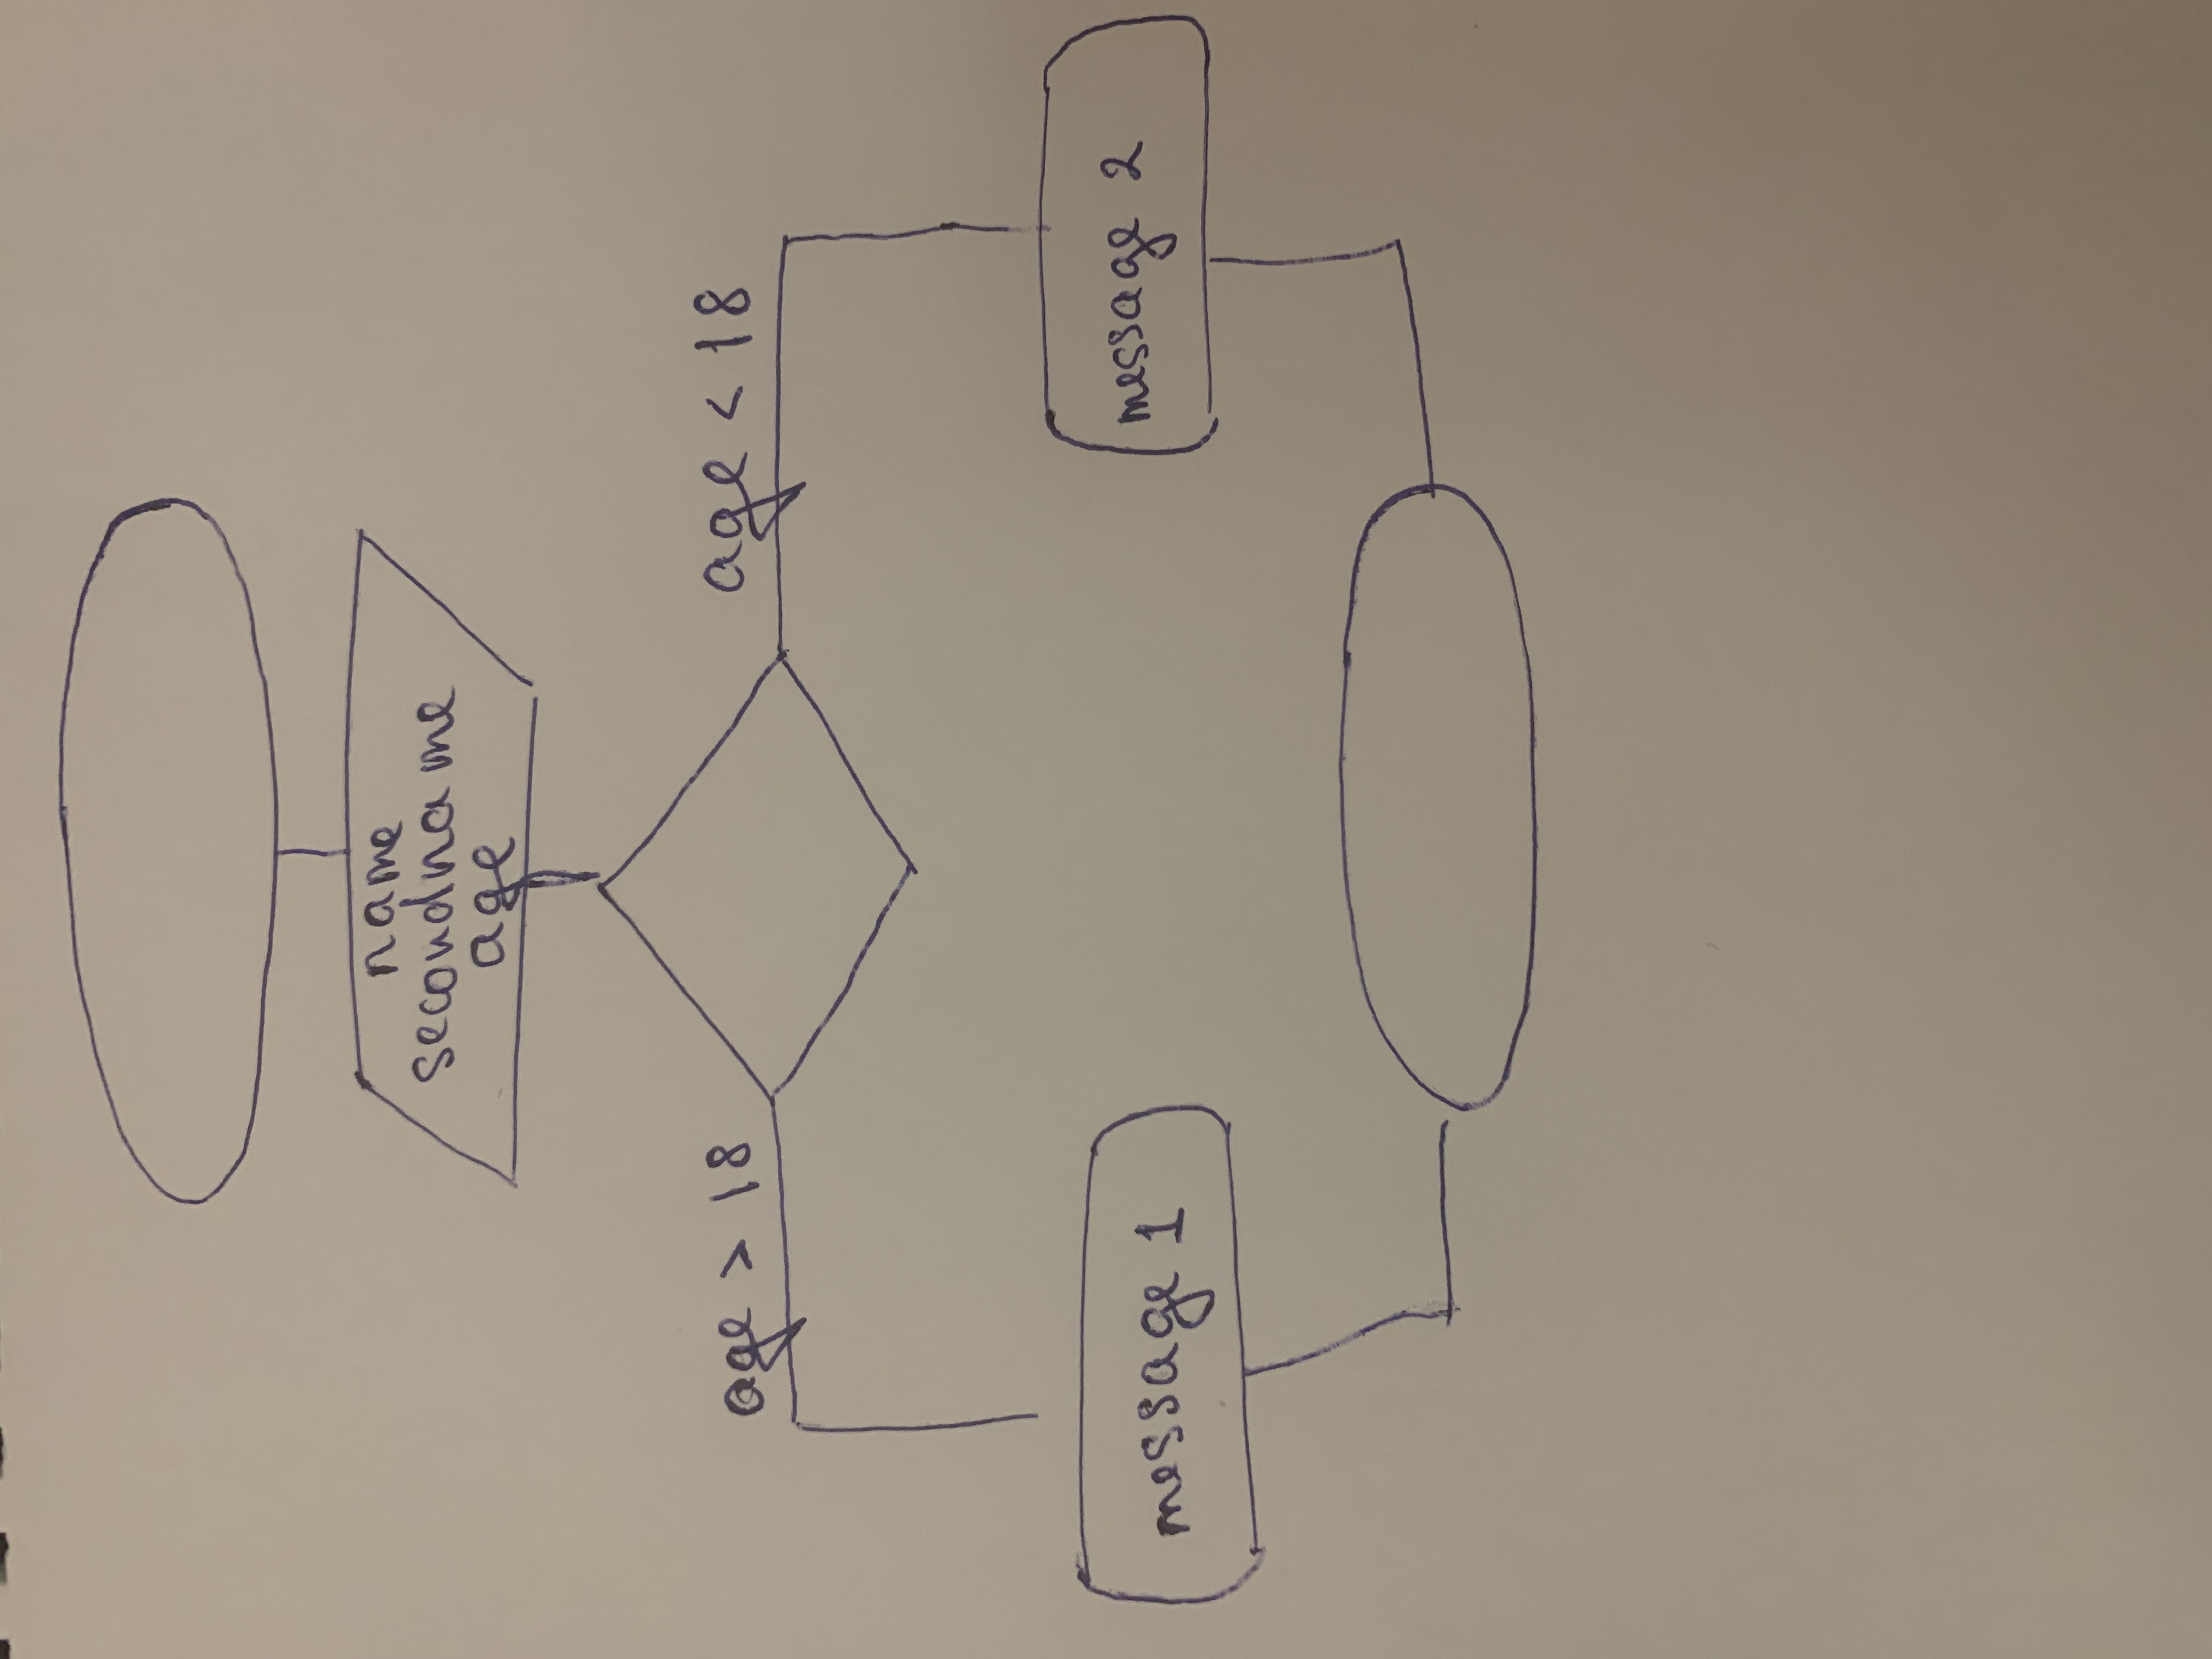 name
secondname
age
age > 18
age < 18
message 1
message 2